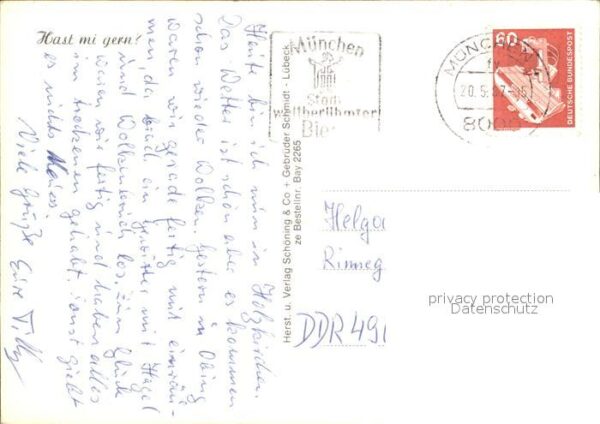 Hast mi gern?
Heute bin ich nun in Holzkirchen.
Das Wetter ist schön aber es kommen
schon wieder Wolken. Gestern in Obing
waren wir gerade fertig mit einräu-
men, da brach ein Gewitter mit Hagel
und Wolkenbruch los. Zum Glück
waren wir fertig und haben alles
im trockenen gehabt. Sonst giebt
es nichts Neues.
Viele Grüße Eure Tilly
Herst. u. Verlag Schöning & Co + Gebrüder Schmidt - Lübeck
ze Bestellnr. Bay 2265
München
Stadt
weltberühmter
Biere
MÜNCHEN
fy
20.5.87-15
8000
60
DEUTSCHE BUNDESPOST
Helga
DDR 49
privacy protection
Datenschutz